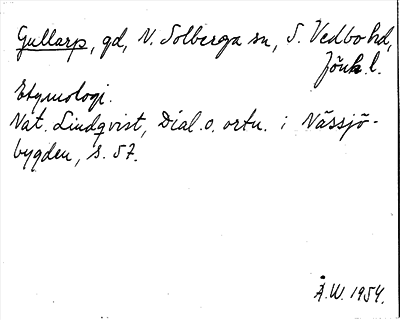 Gullarp, gd, N. Solberga sn, S. Vedbo hd,
Jönk. l.
Etymologi.
Nat. Lindqvist, Dial. o. ortn. i Nässjö-
bygden, s. 57.
Å.W. 1954.